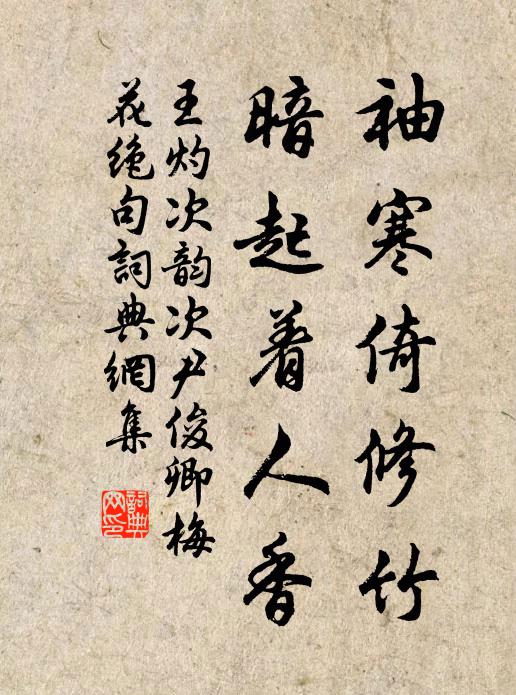 袖寒倚修竹
暗起着人香
王灼次韵次尹俊卿梅
花绝句詞典網集
詞典网印